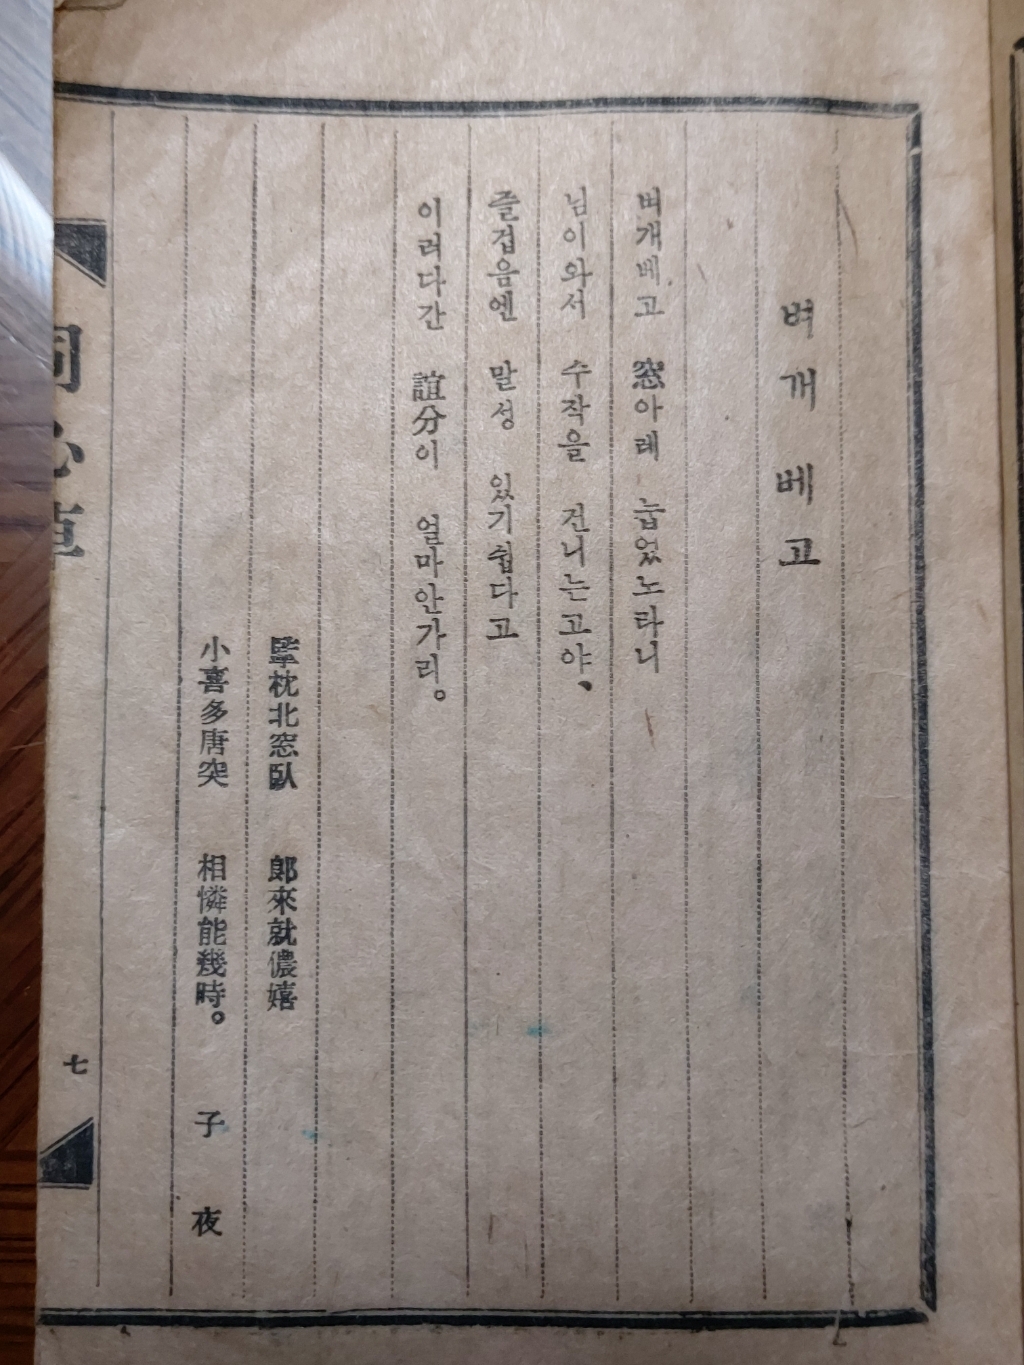 벼개베고
벼개베고 窓아레 눕었노라니
님이와서 수작을 건니는고야、
즐겁음엔 말성 있기쉽다고
이러다간 誼分이 얼마안가리。
擥枕北窓臥 郞來就儂嬉
小喜多唐突 相憐能幾時。 子夜
同心草
七